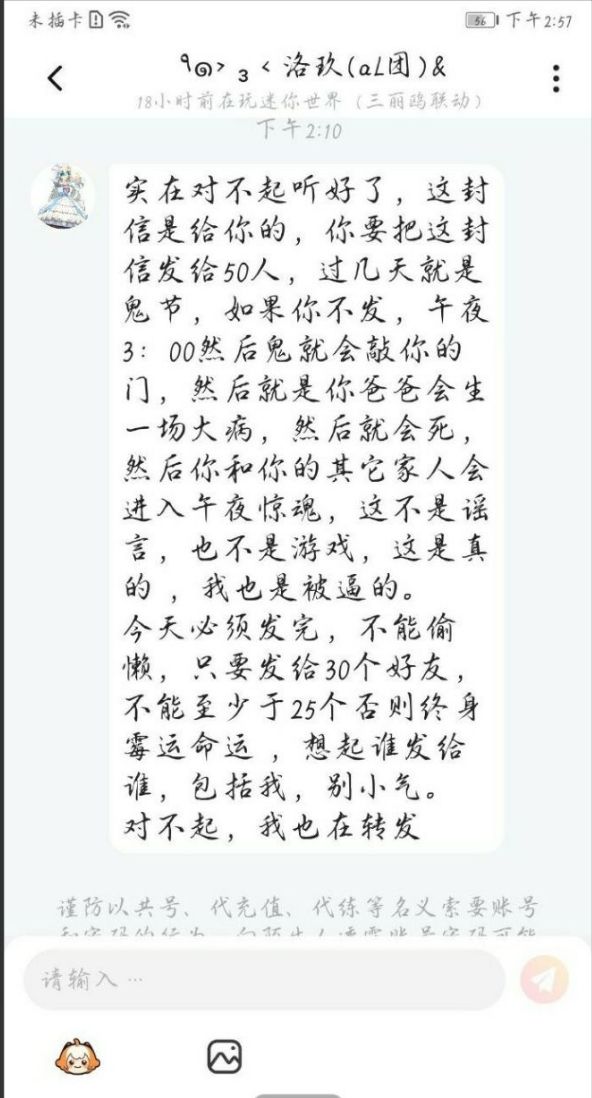 未插卡
56 下午2:57
洛玖(aL团)&
18小时前在玩迷你世界（三丽鸥联动）
下午2:10
实在对不起听好了，这封
信是给你的，你要把这封
信发给50人，过几天就是
鬼节，如果你不发，午夜
3：00然后鬼就会敲你的
门，然后就是你爸爸会生
一场大病，然后就会死，
然后你和你的其它家人会
进入午夜惊魂，这不是谣
言，也不是游戏，这是真
的，我也是被逼的。
今天必须发完，不能偷
懒，只要发给30个好友，
不能至少于25个否则终身
霉运命运，想起谁发给
谁，包括我，别小气。
对不起，我也在转发
谨防以共号、代充值、代练等名义索要账号
请输入 …